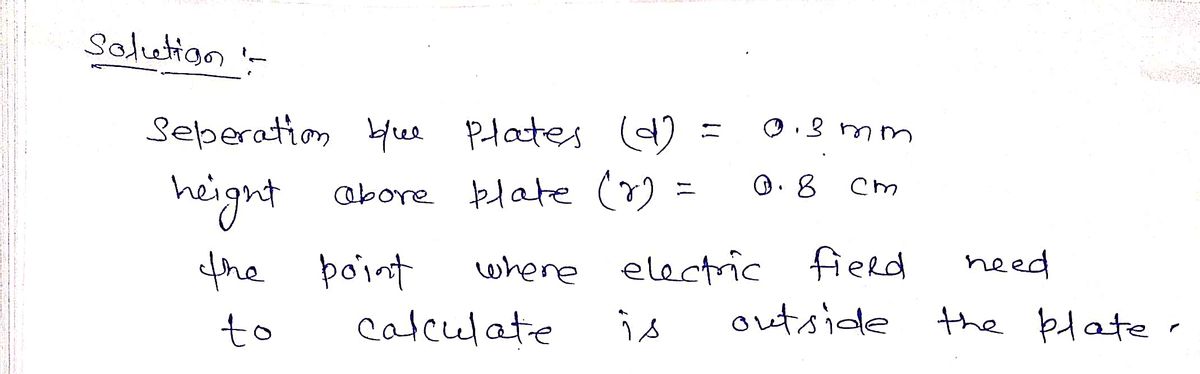 Solution :-
Seperation b/w Plates (d) = 0.3 mm
height above plate (r) = 0.8 cm
the point where electric field need
to calculate is outside the plate.